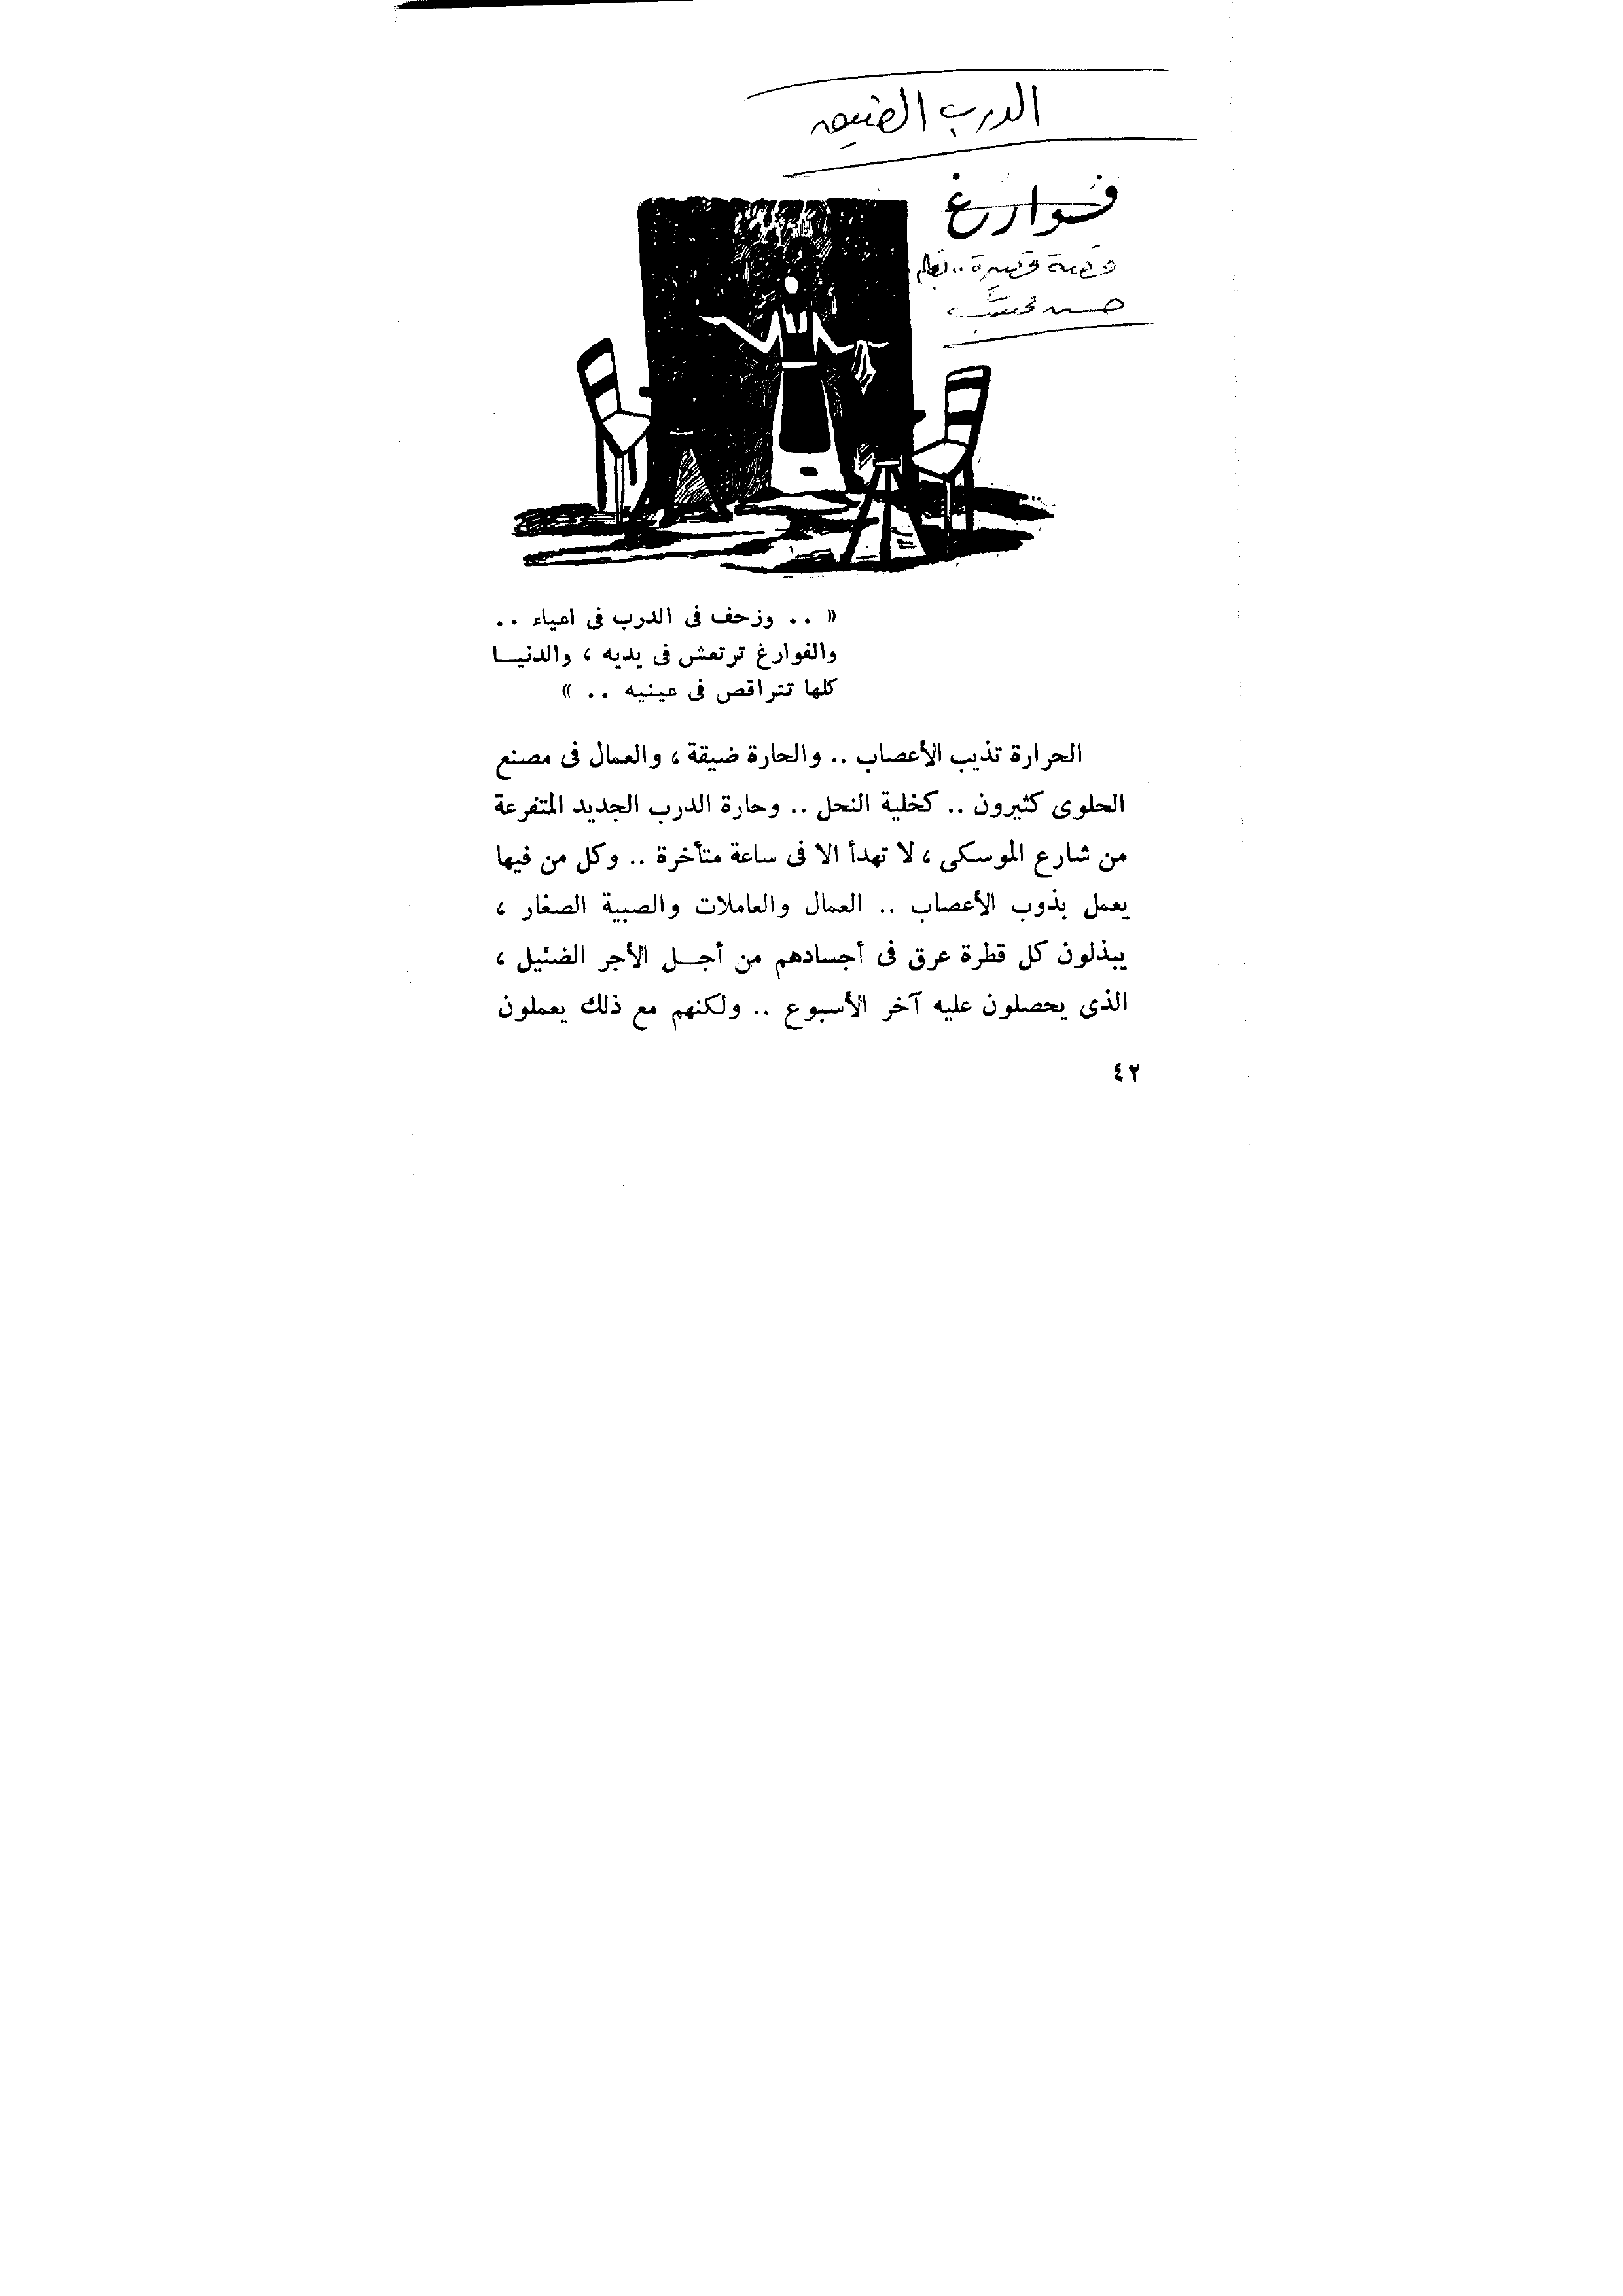 الدرب الضيق
فوارغ
قصة قصيرة .. بقلم
حسن محسب
« .. وزحف فى الدرب فى اعياء ..
والفوارغ ترتعش فى يديه ، والدنيـــا
كلها تتراقص فى عينيه .. »
الحرارة تذيب الأعصاب .. والحارة ضيقة ، والعمال فى مصنع
الحلوى كثيرون .. كخلية النحل .. وحارة الدرب الجديد المتفرعة
من شارع الموسكى ، لا تهدأ الا فى ساعة متأخرة .. وكل من فيها
يعمل بذوب الأعصاب .. العمال والعاملات والصبية الصغار ،
يبذلون كل قطرة عرق فى أجسادهم من أجـــل الأجر الضئيل ،
الذى يحصلون عليه آخر الأسبوع .. ولكنهم مع ذلك يعملون
٤٢